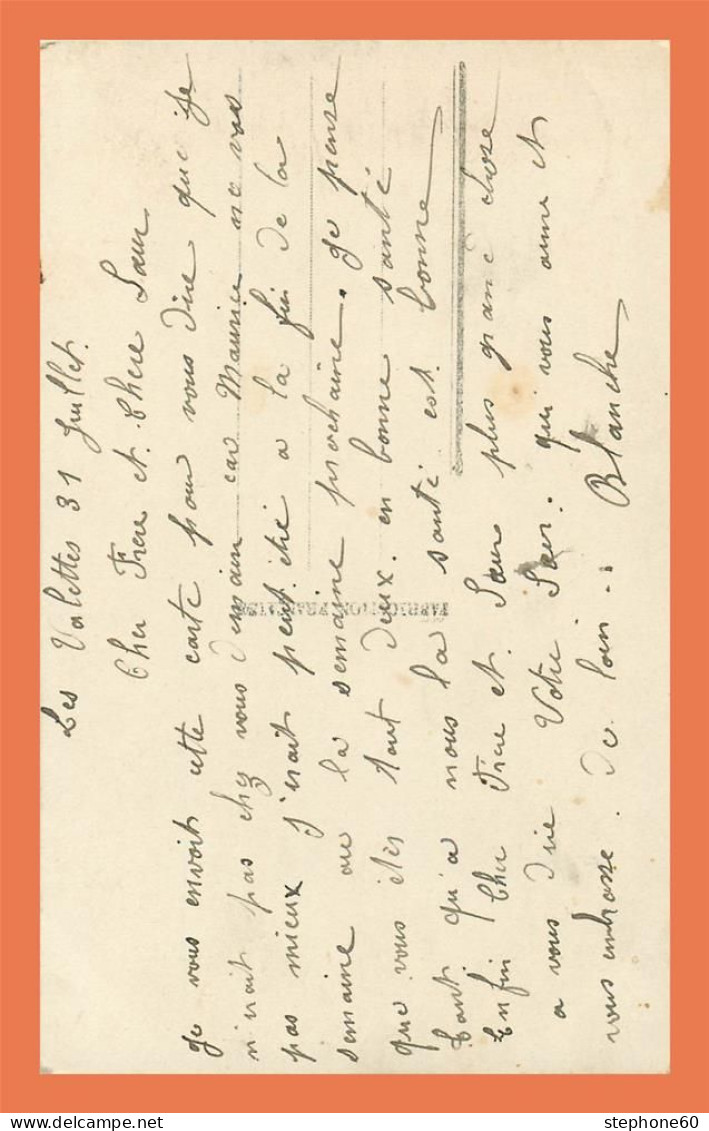 Les Valettes 31 Juillet.
Cher Frere et. Chere Sœur
Je vous envoit cette carte pour vous dire que je
n'irait pas chez vous demain car Maurice ne vas
pas mieux j'irait peut etre a la fin de la
semaine ou la semaine prochaine. Je pense
que vous êtes tout deux. en bonne santé
tant qu'a nous la santé est bonne
Enfin Cher Frere et. Sœur plus grand chose
a vous dire Votre Sœur. qui vous aime et
vous embrasse. De loin..
Blanche
FABRICATION FRANÇAISE
stephone60